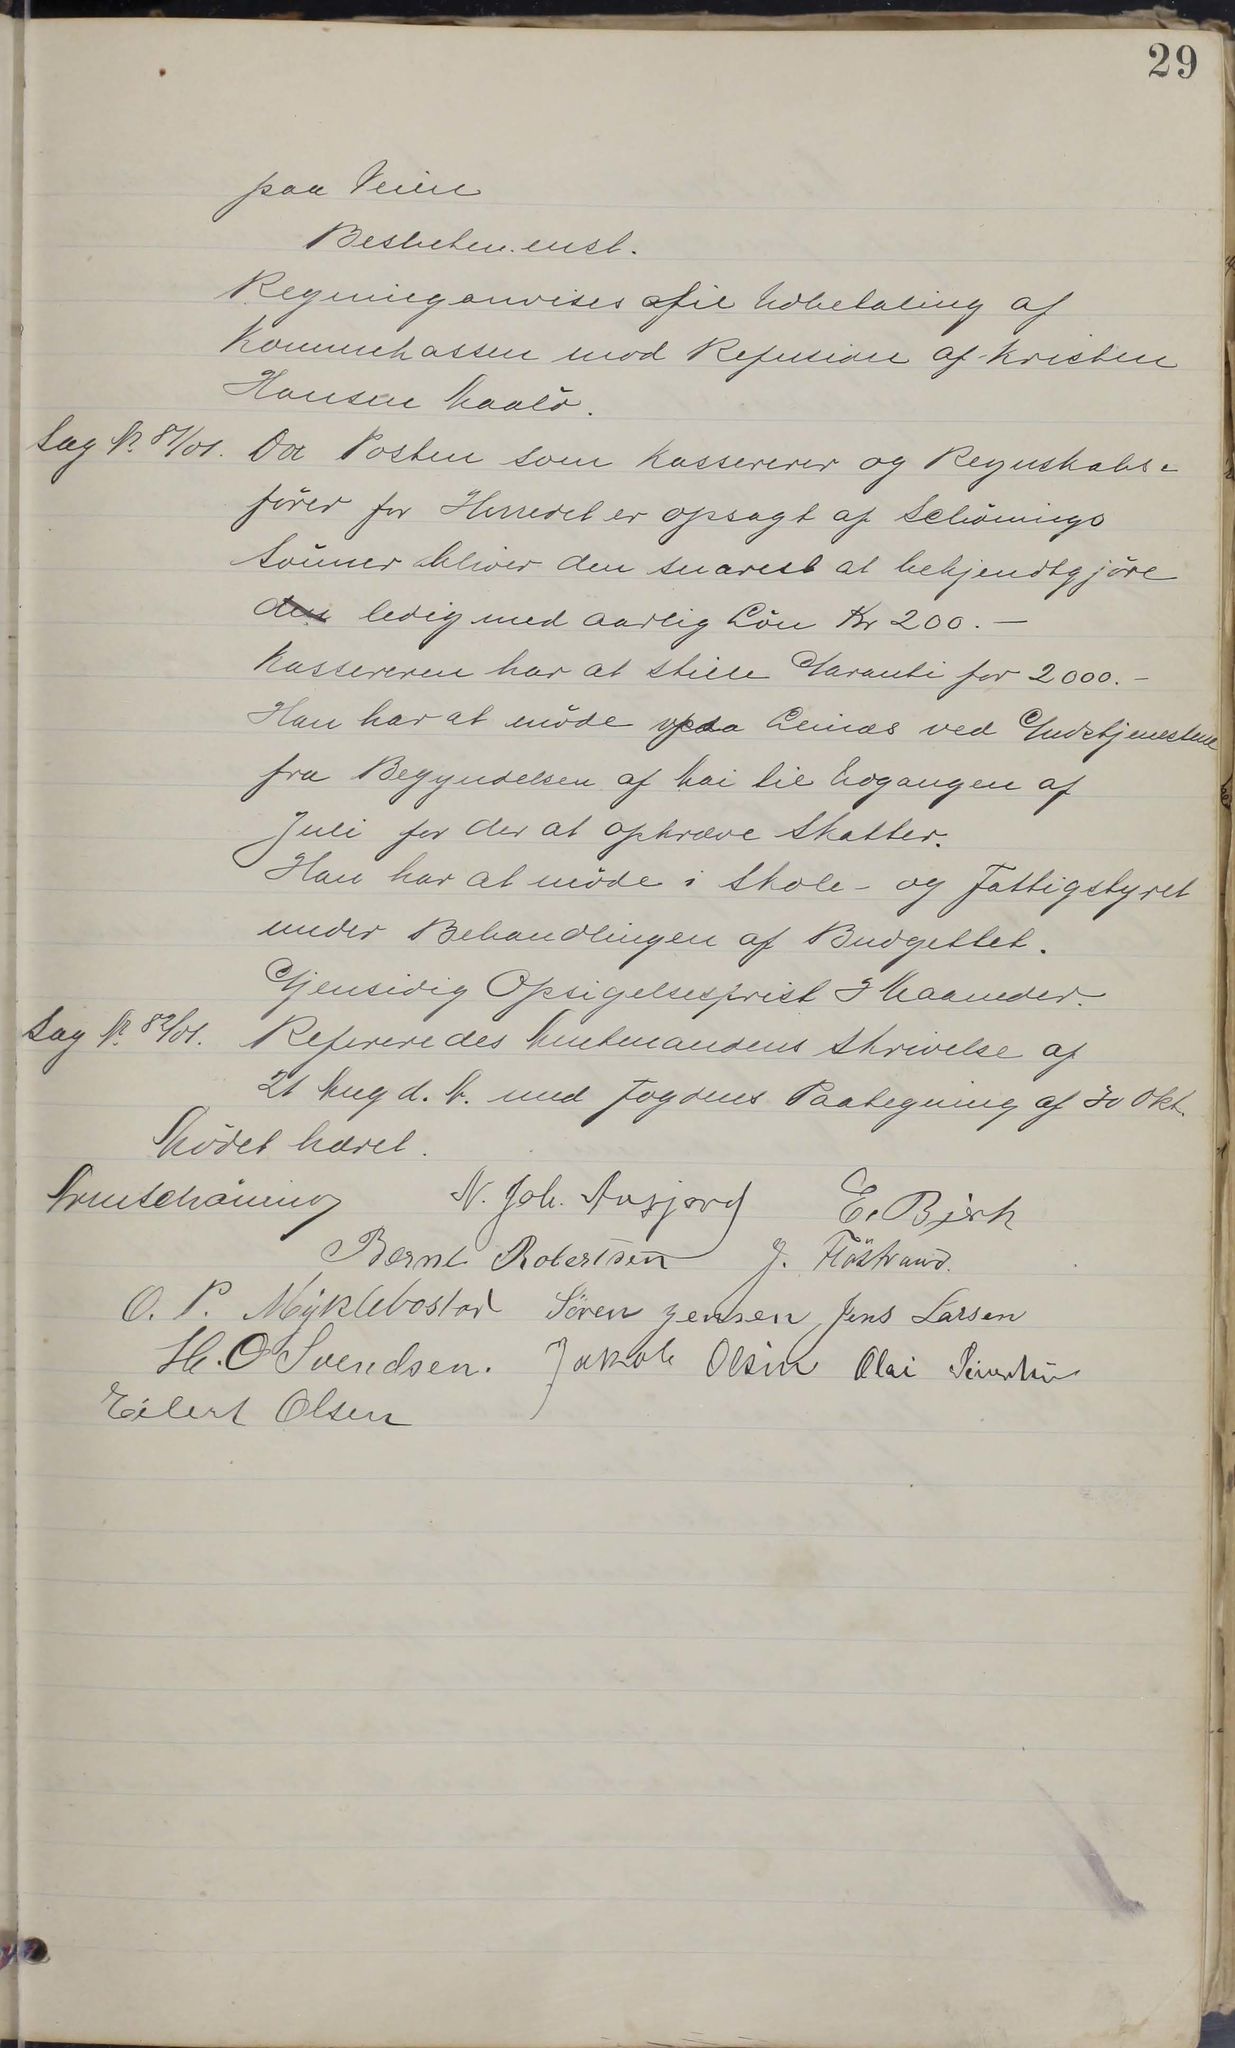 29
paa Veien
Beslutten. enst.
Regning anvises til Udbetaling af
Kommekassen mod Refusion af Kristen
Hansen Maalö.
Sag N. 81/01. Da Posten som Kassererer og Regnskabs-
förer for Herredet er opsagt af Schönings
Sönner bliver den snarest at bekjendtgjöre
den ledig med aarlig Lön Kr 200.-
Kassereren har at stille Garanti for 2000.-
Han har at möde paa Leinæs ved Gudstjenestene
fra Begyndelsen af Mai til Udgangen af
Juli for der at opkræve Skatter.
Han har at möde i Skole- og Fattigstyret
under Behandlingen af Budgettet.
Gjensidig Opsigelsesfrist 3 Maaneder.
Sag N. 82/01. Refereredes Amtmandens Skrivelse af
21 Aug d. A. med Fogdens Paategning af 30 Okt.
Mödet hævet.
Arntschöning N. Joh. Aosjord E. Birk
Bernt Robertsen J. Flöstrand.
O. P. Myklebostad Sören Jensen Jens Larsen
H. O Svendsen. Jakob Olsen Olai Sivertsen
Eilert Olsen